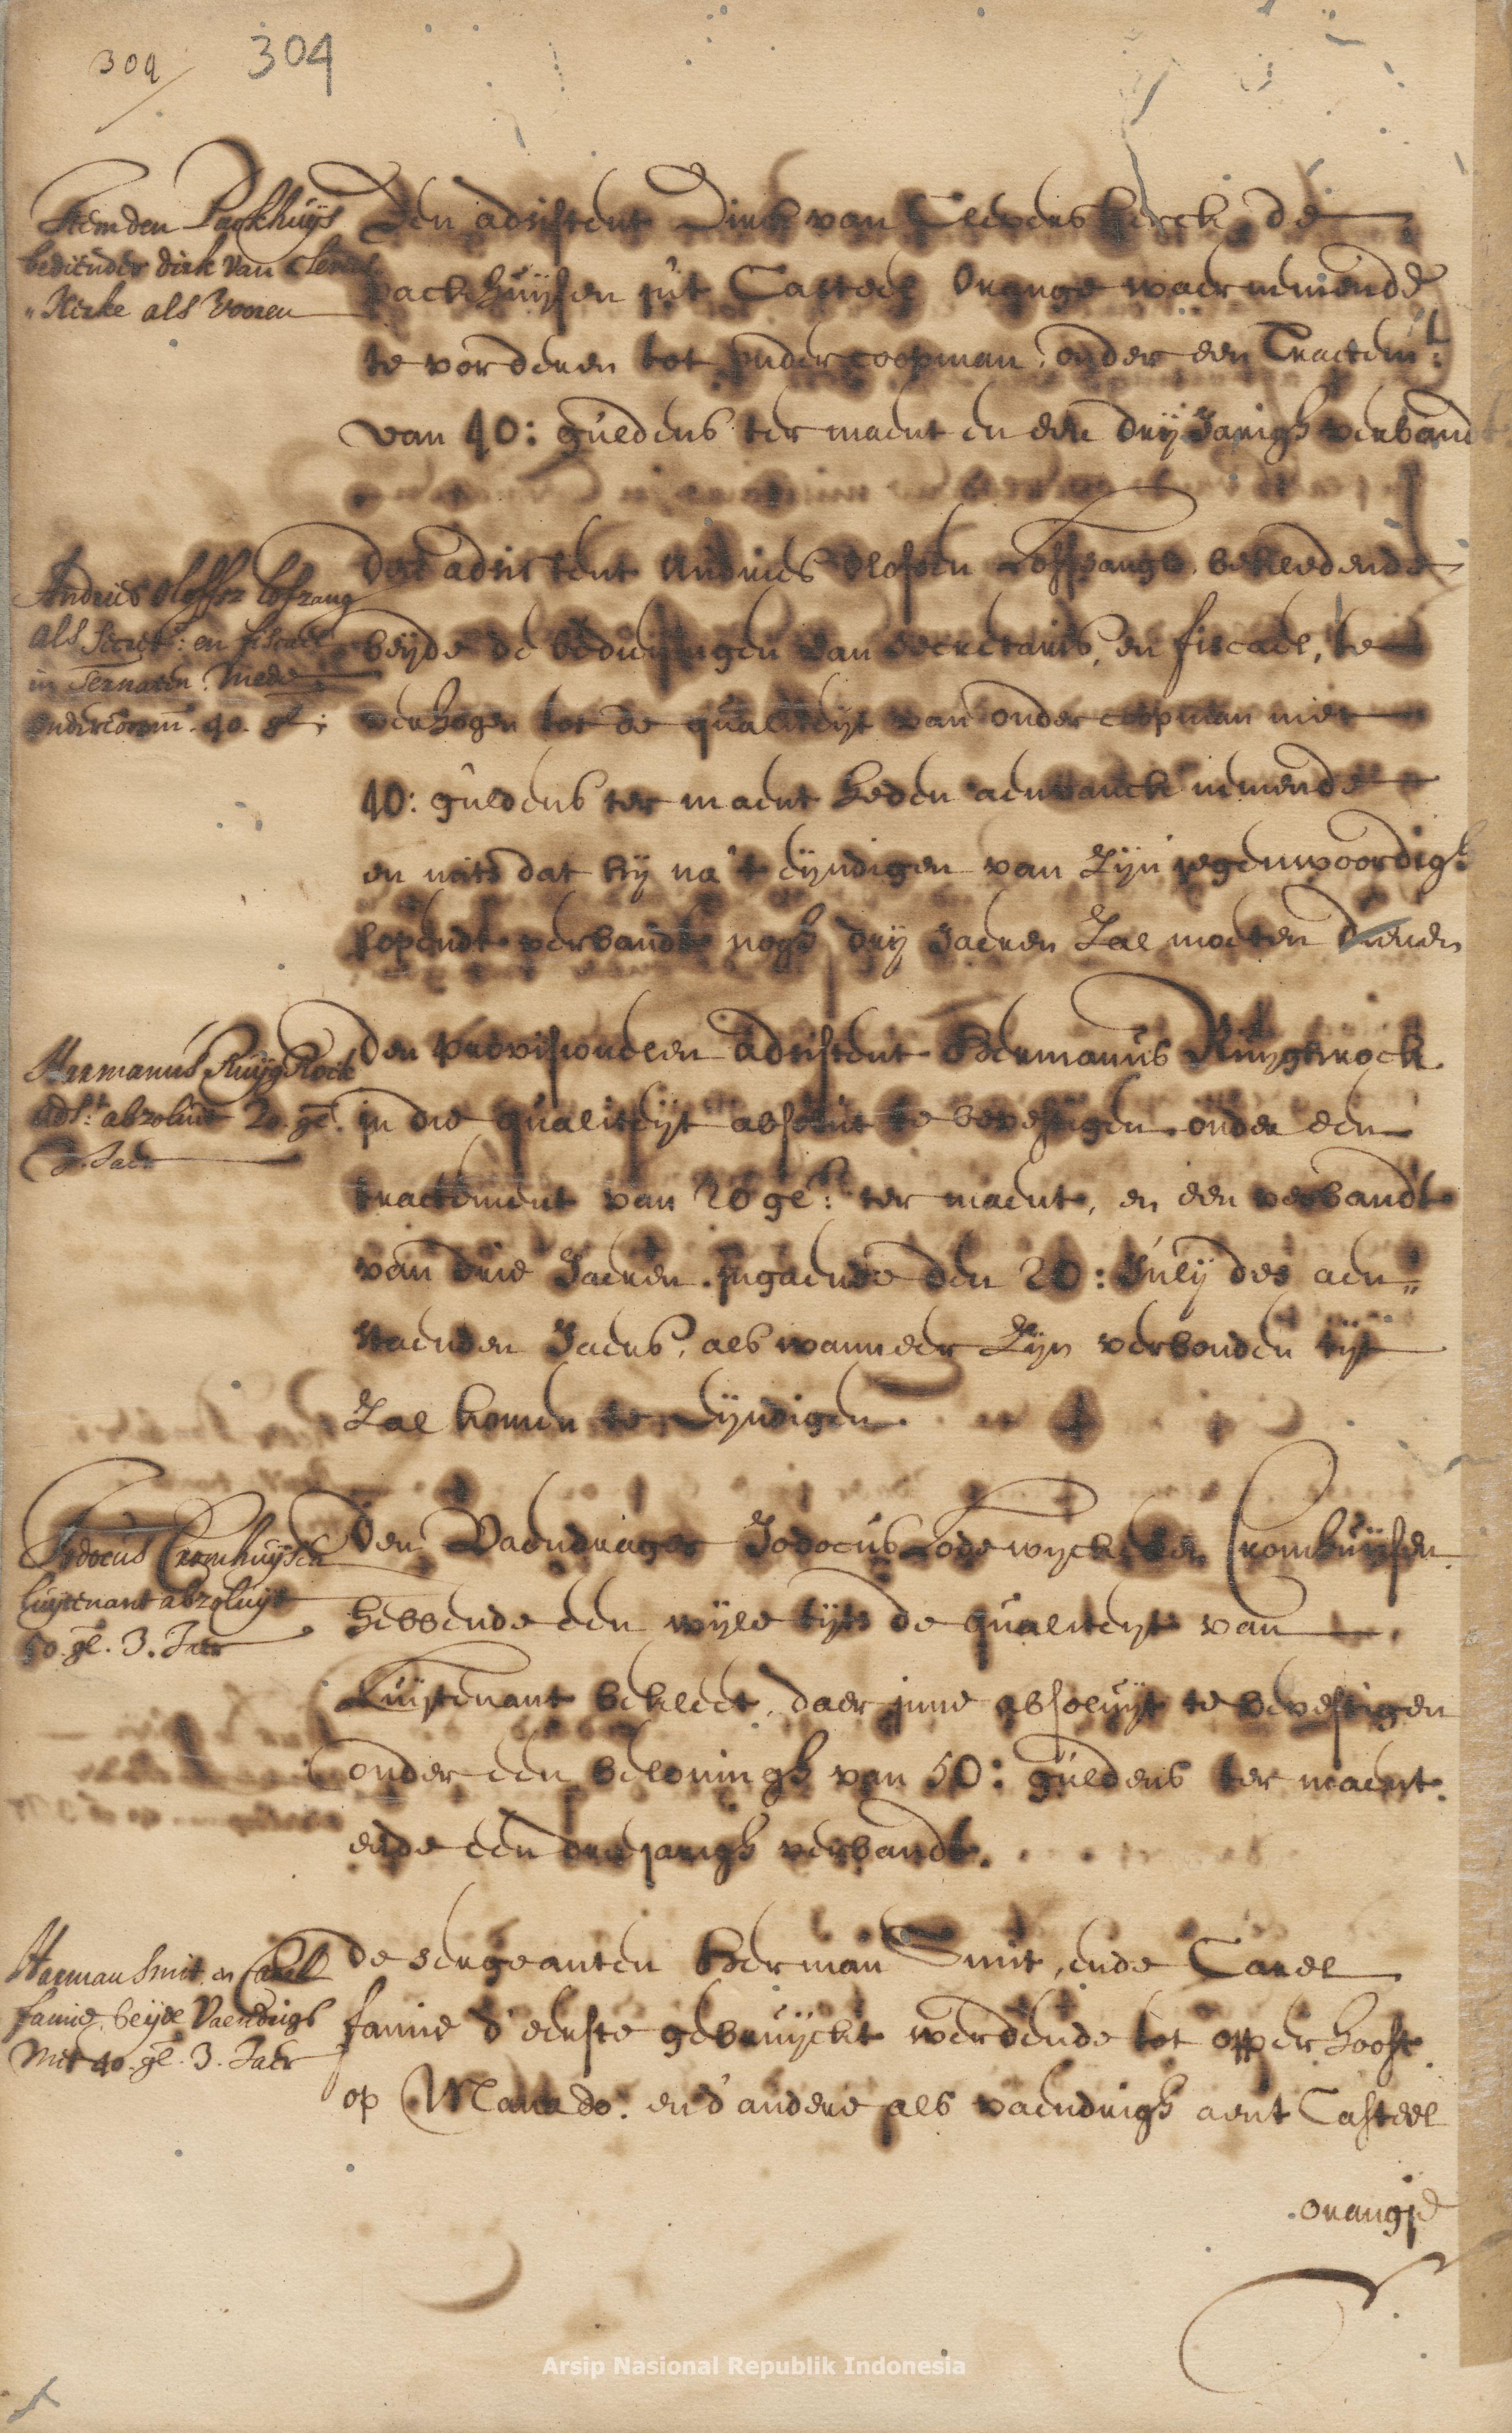 304
304
Item den Packhuijs
bediender dirk van Clevers
"Kerke als vooren
Den adsistent Dirk van Cleverskerck, de
packhuijsen in't Casteel Orange waernemende
te vorderen tot ondercoopman, onder een Tractemt:
van 40: guldens ter maent en een drij Jarigh verbandt
Andries Oloffsz Lofzang
als Secrets: en fiscael
in Ternaten mede
ondercoopm. 40. gl:
Den adsistent Andries Olofsen Loffsangh, bekledende
beijde de bedieningen van Secretaris, en fiscael, te
verhogen tot de qualiteijt van ondercoopman met
40: guldens ter maent heden aenvanck nemende
en mits dat hij na't eijndigen van zijn jegenwoordigh
lopende verbandt nogh drij Jaeren zal moeten dienen
Harmanus Ruijgrock
adst: absoluit 20. gl.
3. Jaer
Den provisioneelen adsistent Hermanus Ruijghrock
in die qualiteijt absoluit te bevestigen onder een
tractement van 20 gls: ter maent, en een verbandt
van drie Jaeren. ingaende den 20: Julij des aen„
staenden Jaers, als wanneer zijn verbonden tijt
zal komen te eijndigen.
Jodocus Cromhuijsen
Luijtenant abzoluijt
50. gl. 3. Jaer
Den Vaendrager Jodocus Lodewijck van Cromhuijsen
hebbende een wijle tijts de qualiteijt van
Luijtenant bekleet, daer inne absoluijt te bevestigen
onder een beloningh van 50: guldens ter maent.
ende een driejarigh verbandt.
Harman Smit en Carel
famie beijde Vaendrigs
met 40. gl. 3. Jaer
De sergeanten Herman Smit, ende Carel
famie d'eerste gebruijckt werdende tot opperhooft
op Manado. en d'andere als vaendrigh aent Casteel
orangie
Arsip Nasional Republik Indonesia